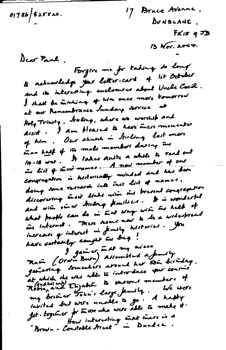 01786/825520.
17 Bruce Avenue,
DUNBLANE,
FK15 9JB
13 Nov. 2004.
Dear Paul,
Forgive me for taking so long
to acknowledge your letter-card of 1st October
and its interesting enclosure about Uncle Cecil.
I shall be thinking of him once more tomorrow
at our Remembrance Sunday service at
Holy Trinity, Stirling, where we worship and
assist. I am pleased to have mementos
of him. Our church in Stirling lost more
than half of its male members during the
14-18 war. It takes quite a while to read out
the list of their names. A new member of our
congregation is historically minded and has been
doing some research into that list of names,
discovering that links with the present congregation
and with other Stirling families. It is wonderful
what people can do in that way with the help of
the internet. There seems now to be a widespread
increase of interest in family histories. You
have certainly caught the bug!
I gather, that my niece
"Rain" (Orwin Burn) assembled a family
gathering somewhere around her birthday,
at which she was able to introduce your cousins
Robbie, and Elizabeth to various members of
my brother John's large family. We were
invited but were unable to go. A happy
get-together for those who were able to make it.
How interesting that there is a
"Brown - Constable Street" in Dundee.